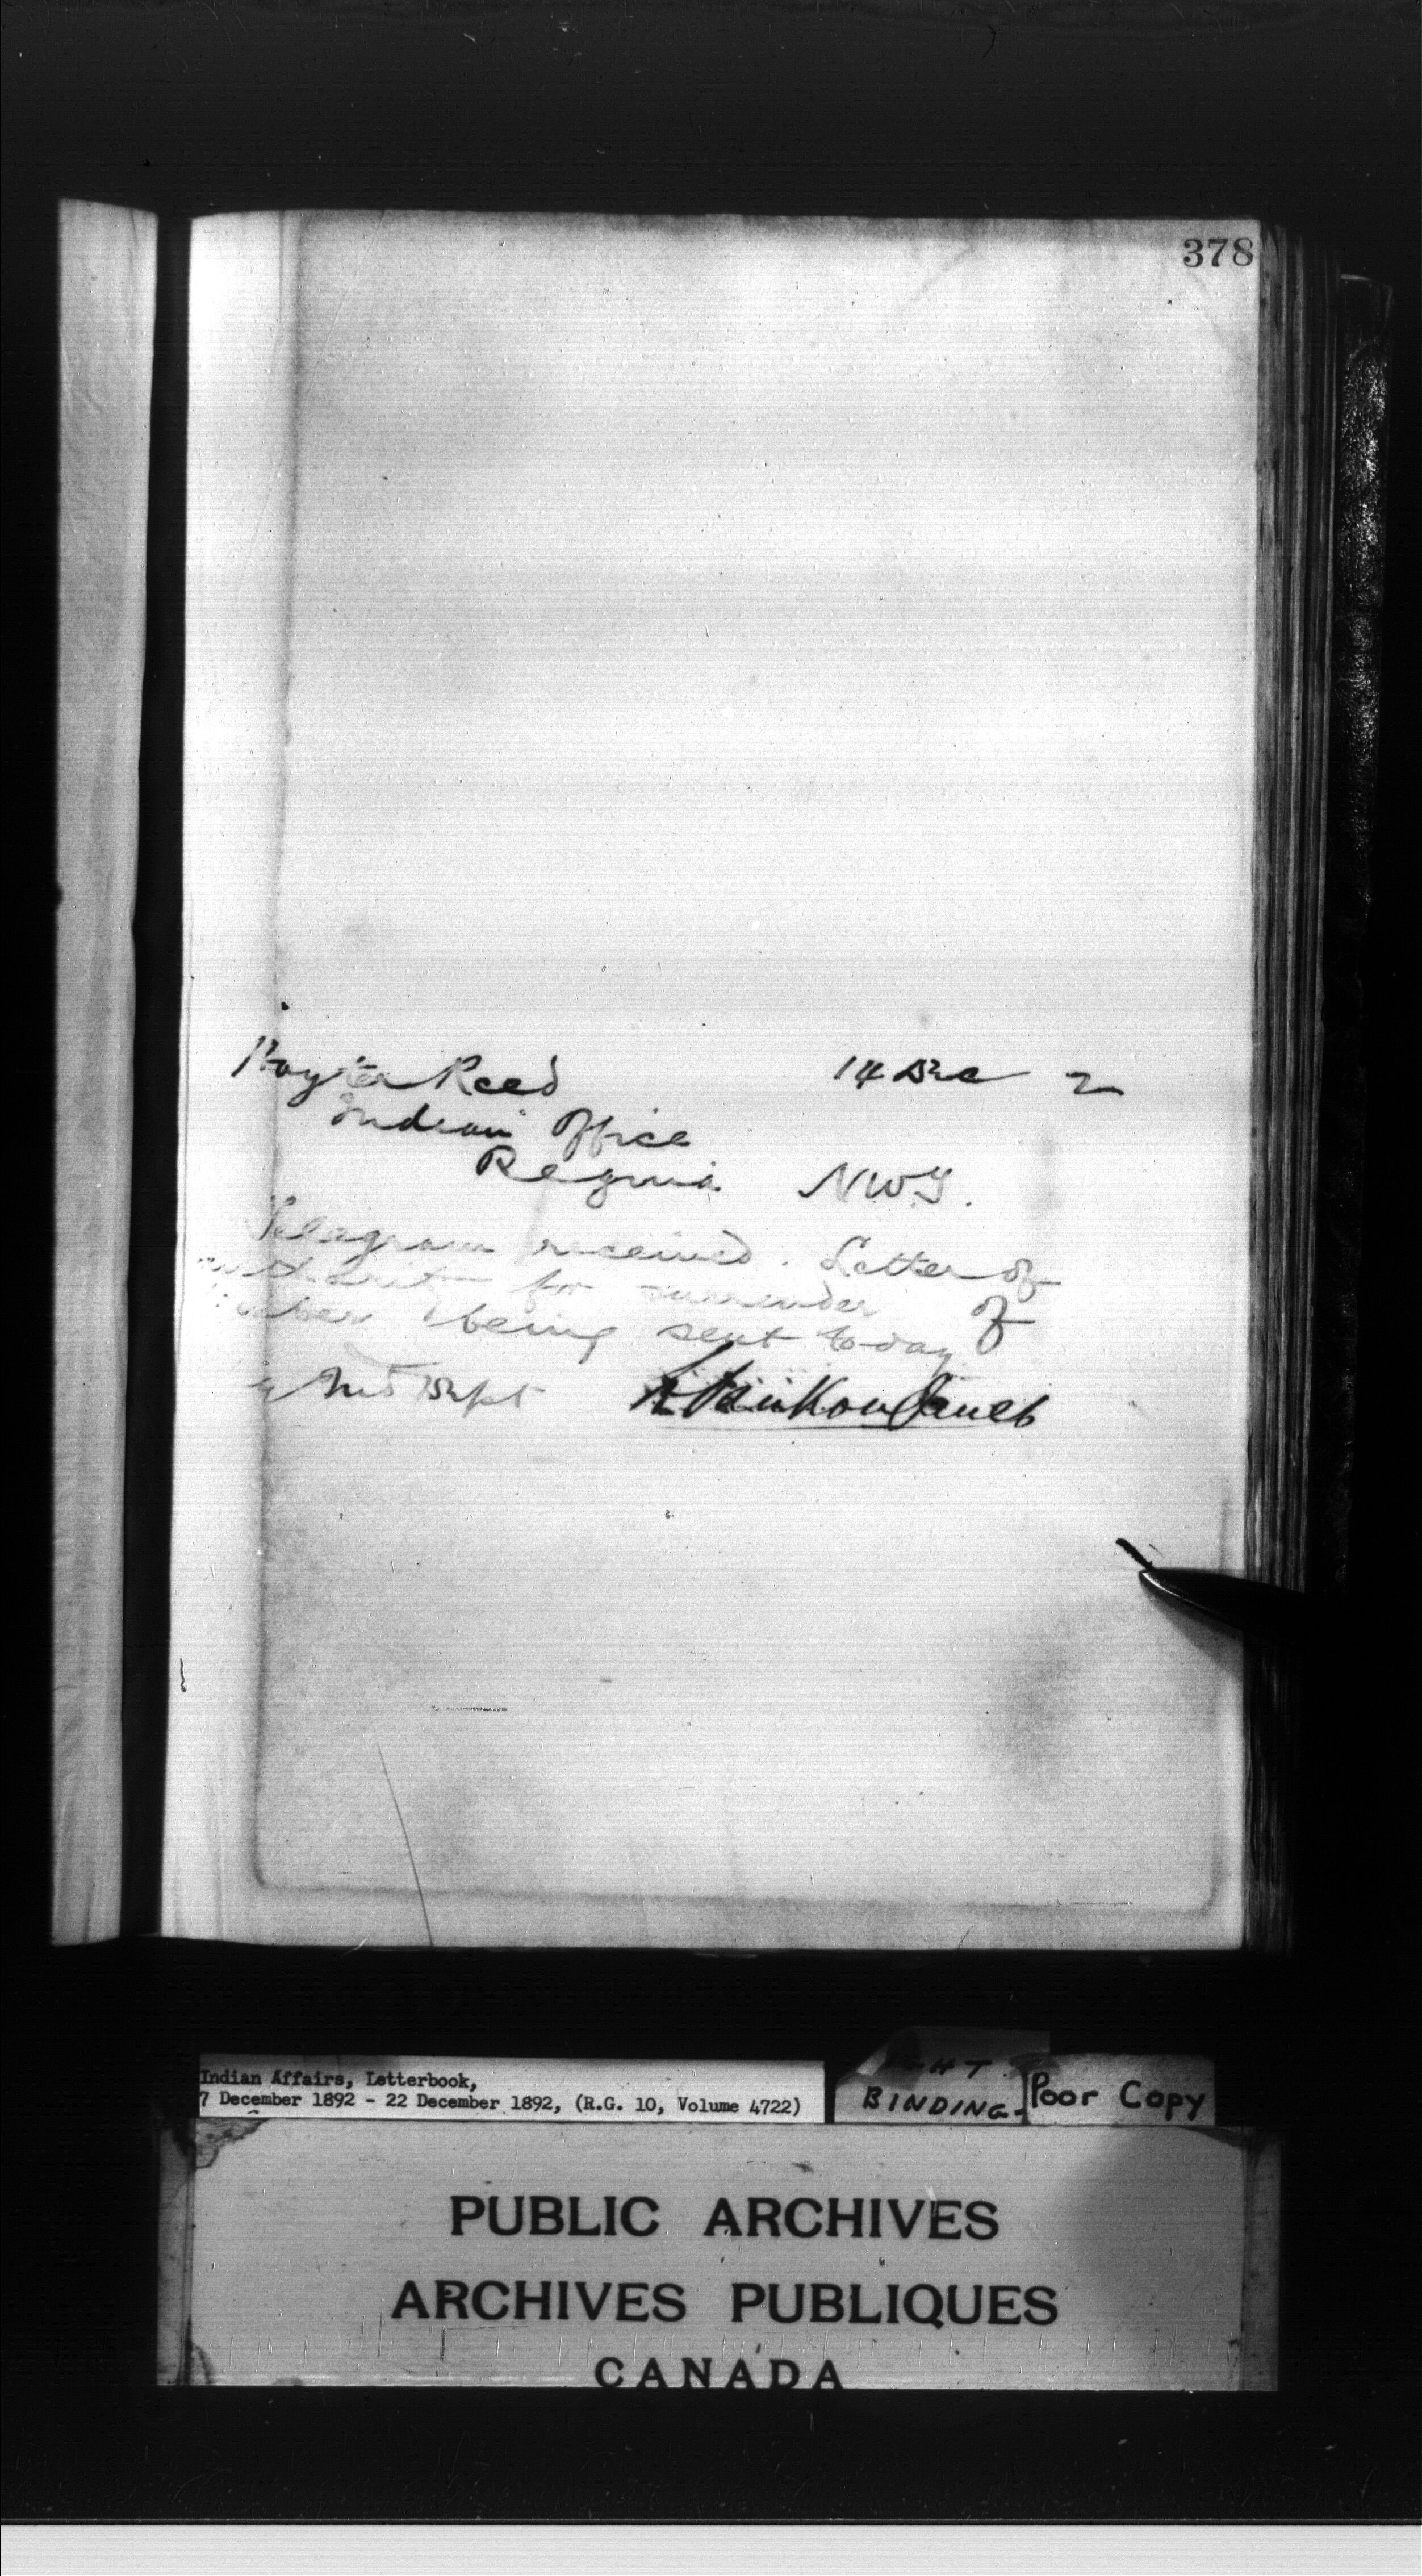 378
Hayter Reed 14 Dec 2
Indian Office
Regina NWT.
Telegram received. Letter of
authority for surrender of
being sent to-day
Ind Dept
Indian Affairs, Letterbook,
7 December 1892 - 22 December 1892, (R.G. 10, Volume 4722)
BINDING-
Poor Copy
PUBLIC ARCHIVES
ARCHIVES PUBLIQUES
CANADA